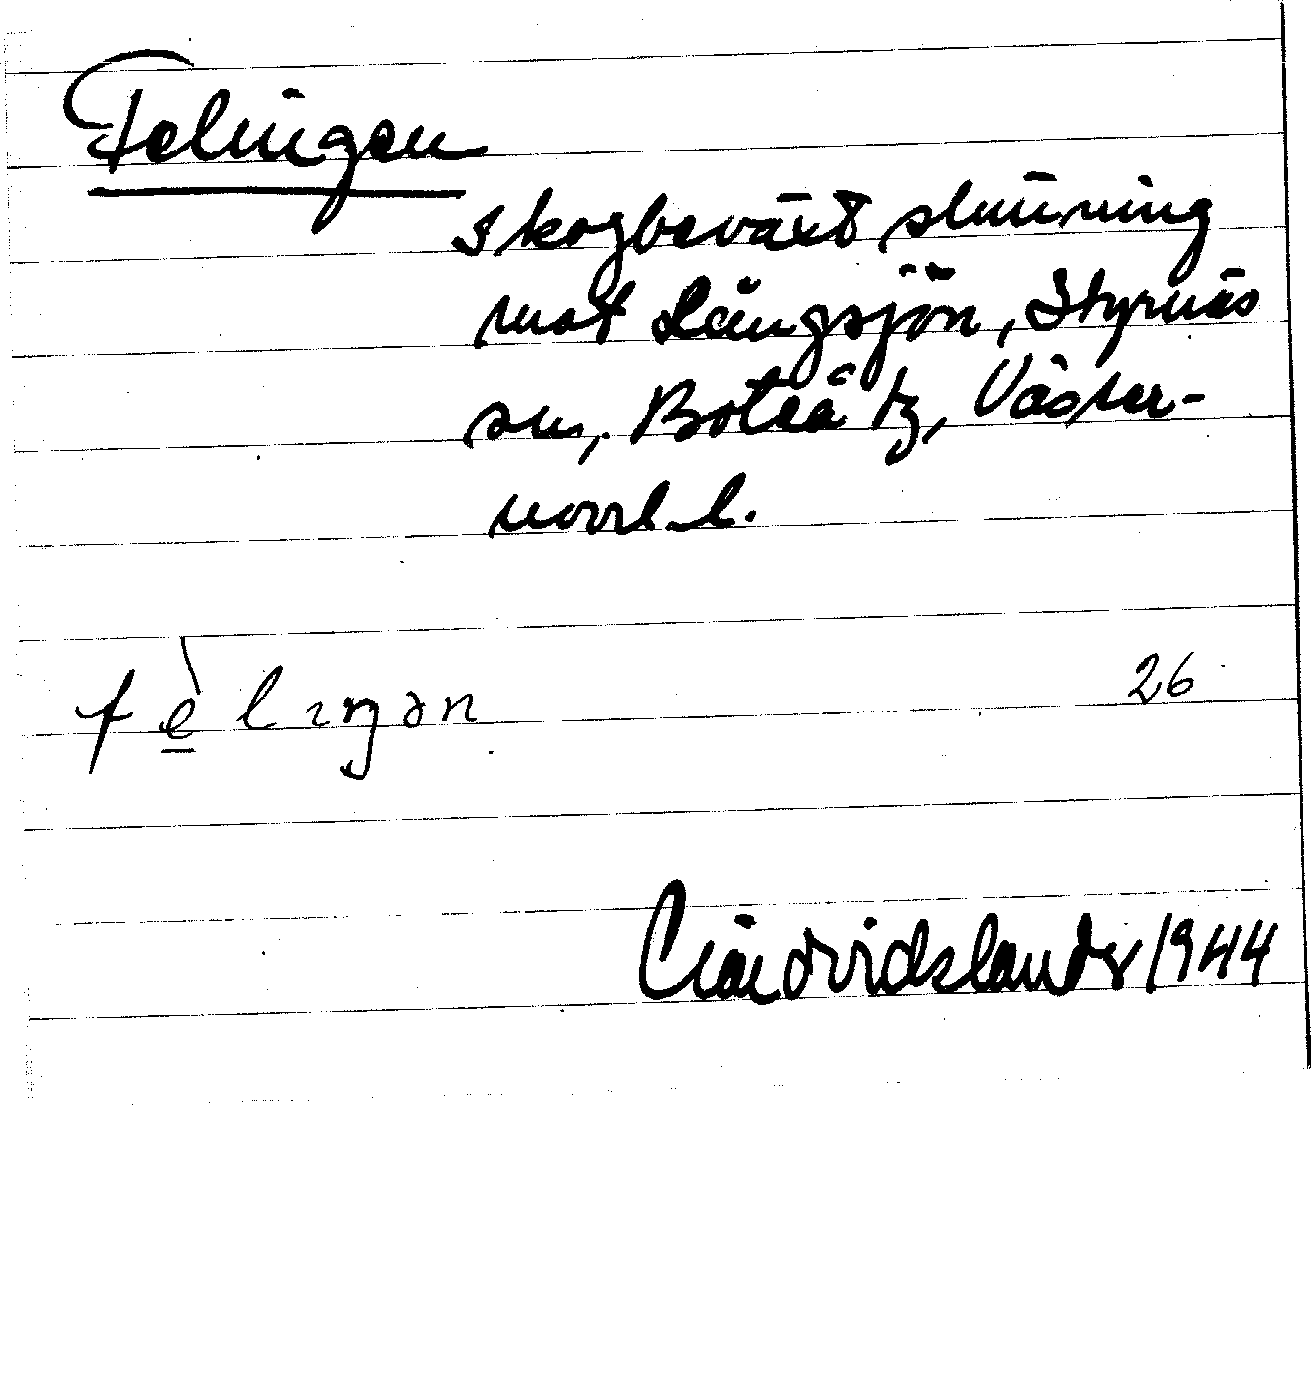 Felingen
skogbeväxt sluttning
mot Långsjön, Styrnäs
sn, Boteå tg, Väster-
norrl. l.
fèlıŋən 26
1944